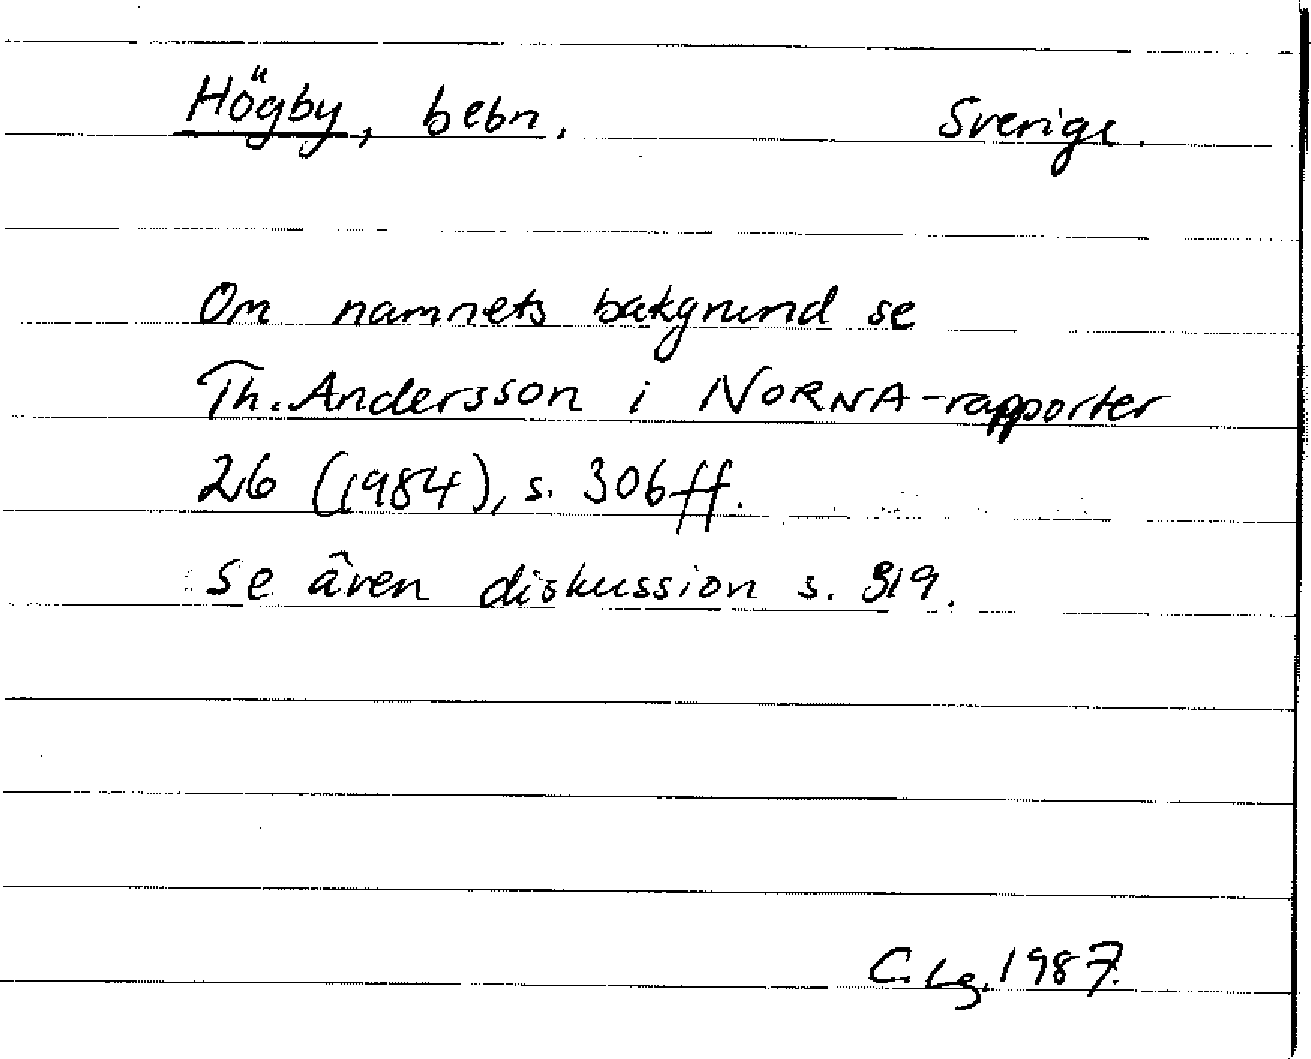 Högby, bebn. Sverige.
Om namnets bakgrund se
Th. Andersson i NORNA-rapporter
26 (1984), s. 306 ff.
Se även diskussion s. 319.
C. Lg. 1987.